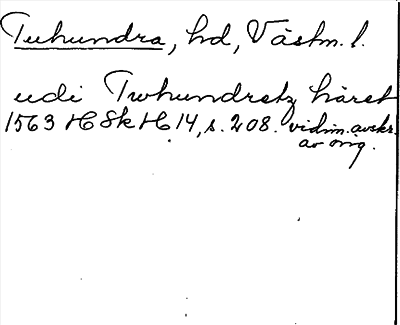 Tuhundra, hd, Västm. l.
udi Twhundretz häret
1563 HSkH 14, s. 208. vidim. avskr.
av orig.